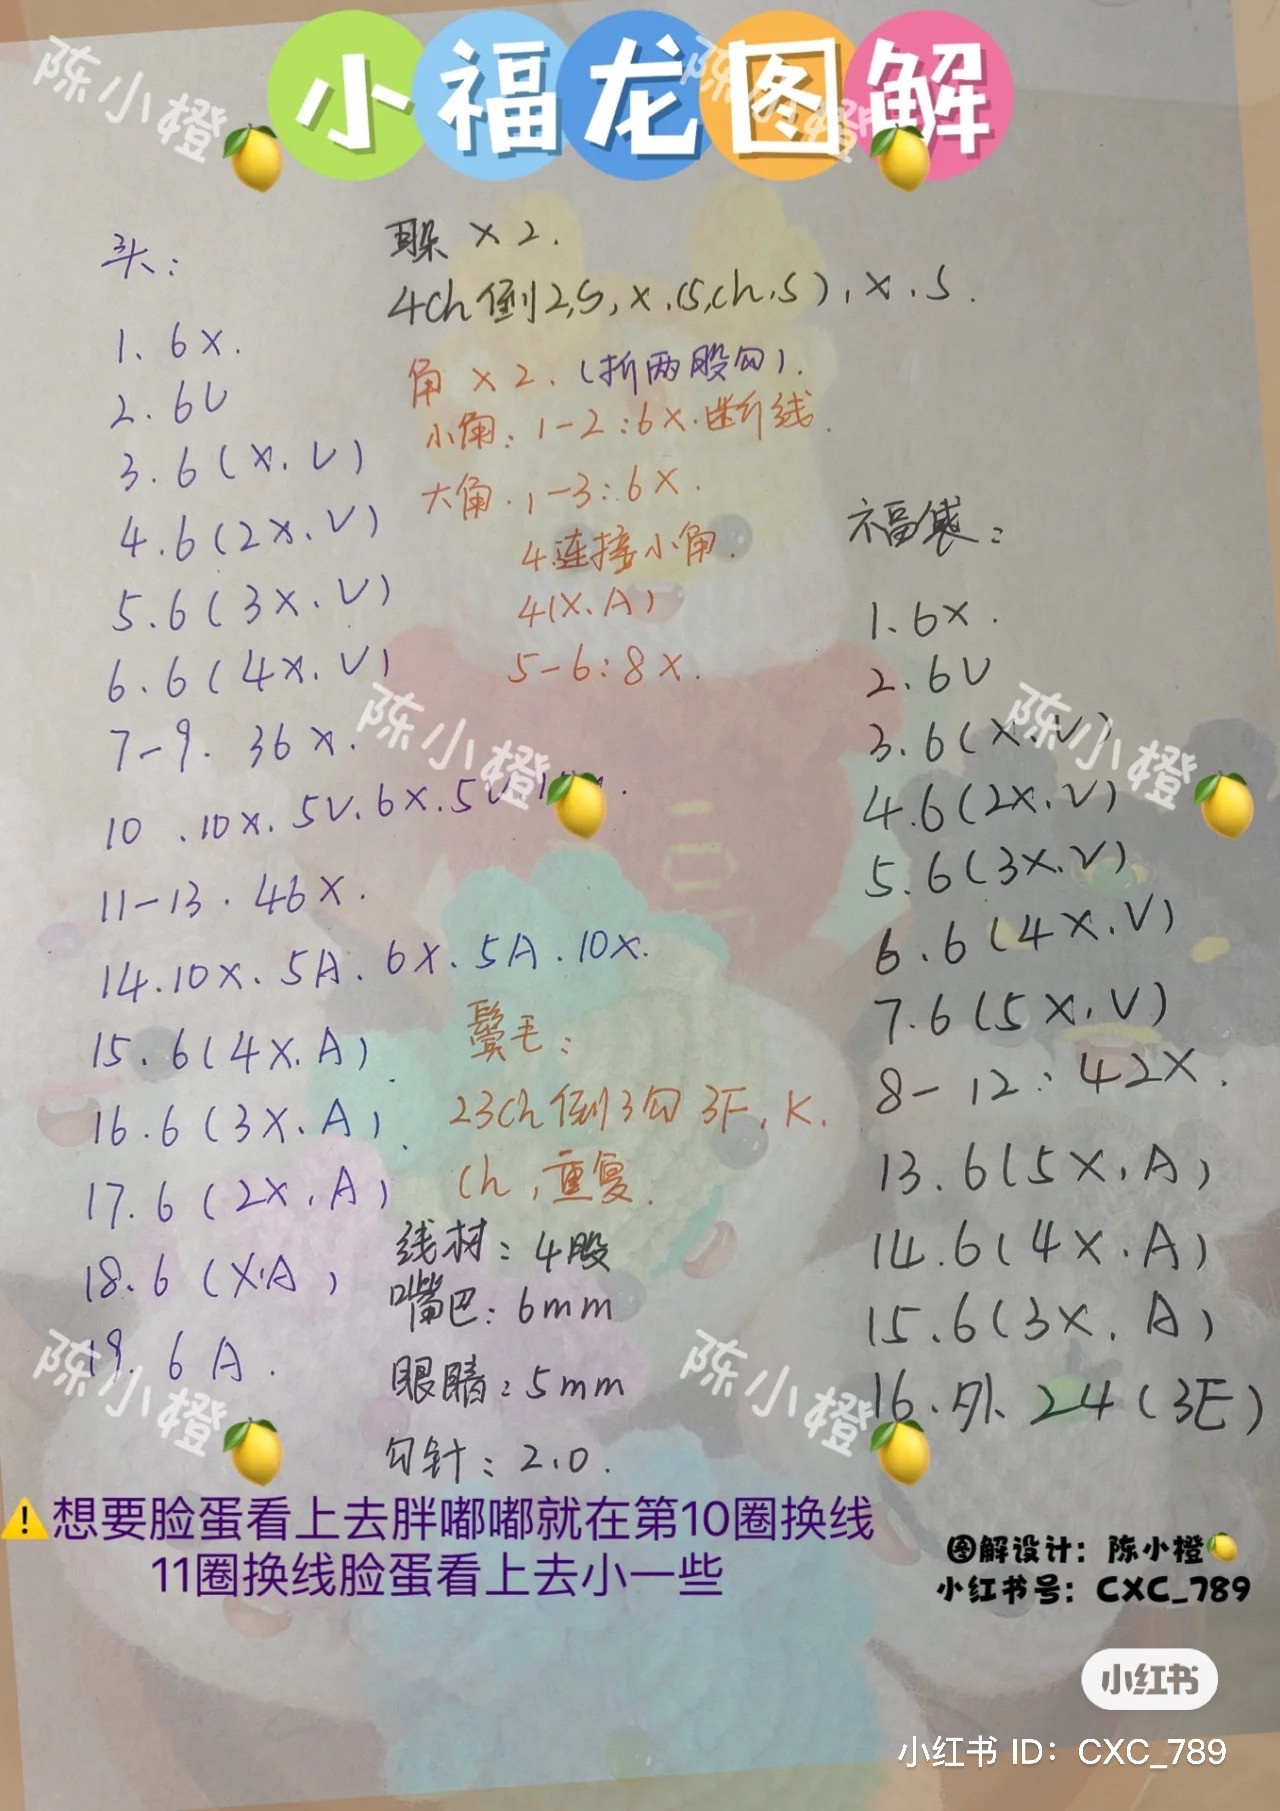 小福龙图解
头：
1、6X.
2.6V
3.6(X.V)
4.6(2X.V)
5.6(3X.V)
6.6(4X.V)
7-9. 36X.
10.10X.5V.6X.5V
11-13.46X.
14.10X.5A.6X.5A.10X.
15.6(4X.A).
16.6(3X.A).
17.6(2X.A)
18.6(X.A)
19.6A.
耳朵X2.
4ch倒2,S,X.(S,ch,S),X.S.
角X2.(折两股勾).
小角：1-2:6X.断线.
大角.1-3:6X.
4.连接小角.
4(X.A)
5-6:8X.
鬓毛：
23ch倒3勾3F,K.
ch,重复.
线材：4股
嘴巴：6mm
眼睛：5mm
勾针：2.0.
福袋：
1.6X.
2.6V
3.6(X.V)
4.6(2X.V)
5.6(3X.V)
6.6(4X.V)
7.6(5X.V)
8-12:42X.
13.6(5X,A)
14.6(4X.A)
15.6(3X.A)
16.外.24(3E)
⚠️想要脸蛋看上去胖嘟嘟就在第10圈换线
11圈换线脸蛋看上去小一些
图解设计：陈小橙🍋
小红书号：CXC_789
小红书
小红书 ID：CXC_789
陈小橙🍋
陈小橙🍋
陈小橙🍋
陈小橙🍋
陈小橙🍋
陈小橙🍋